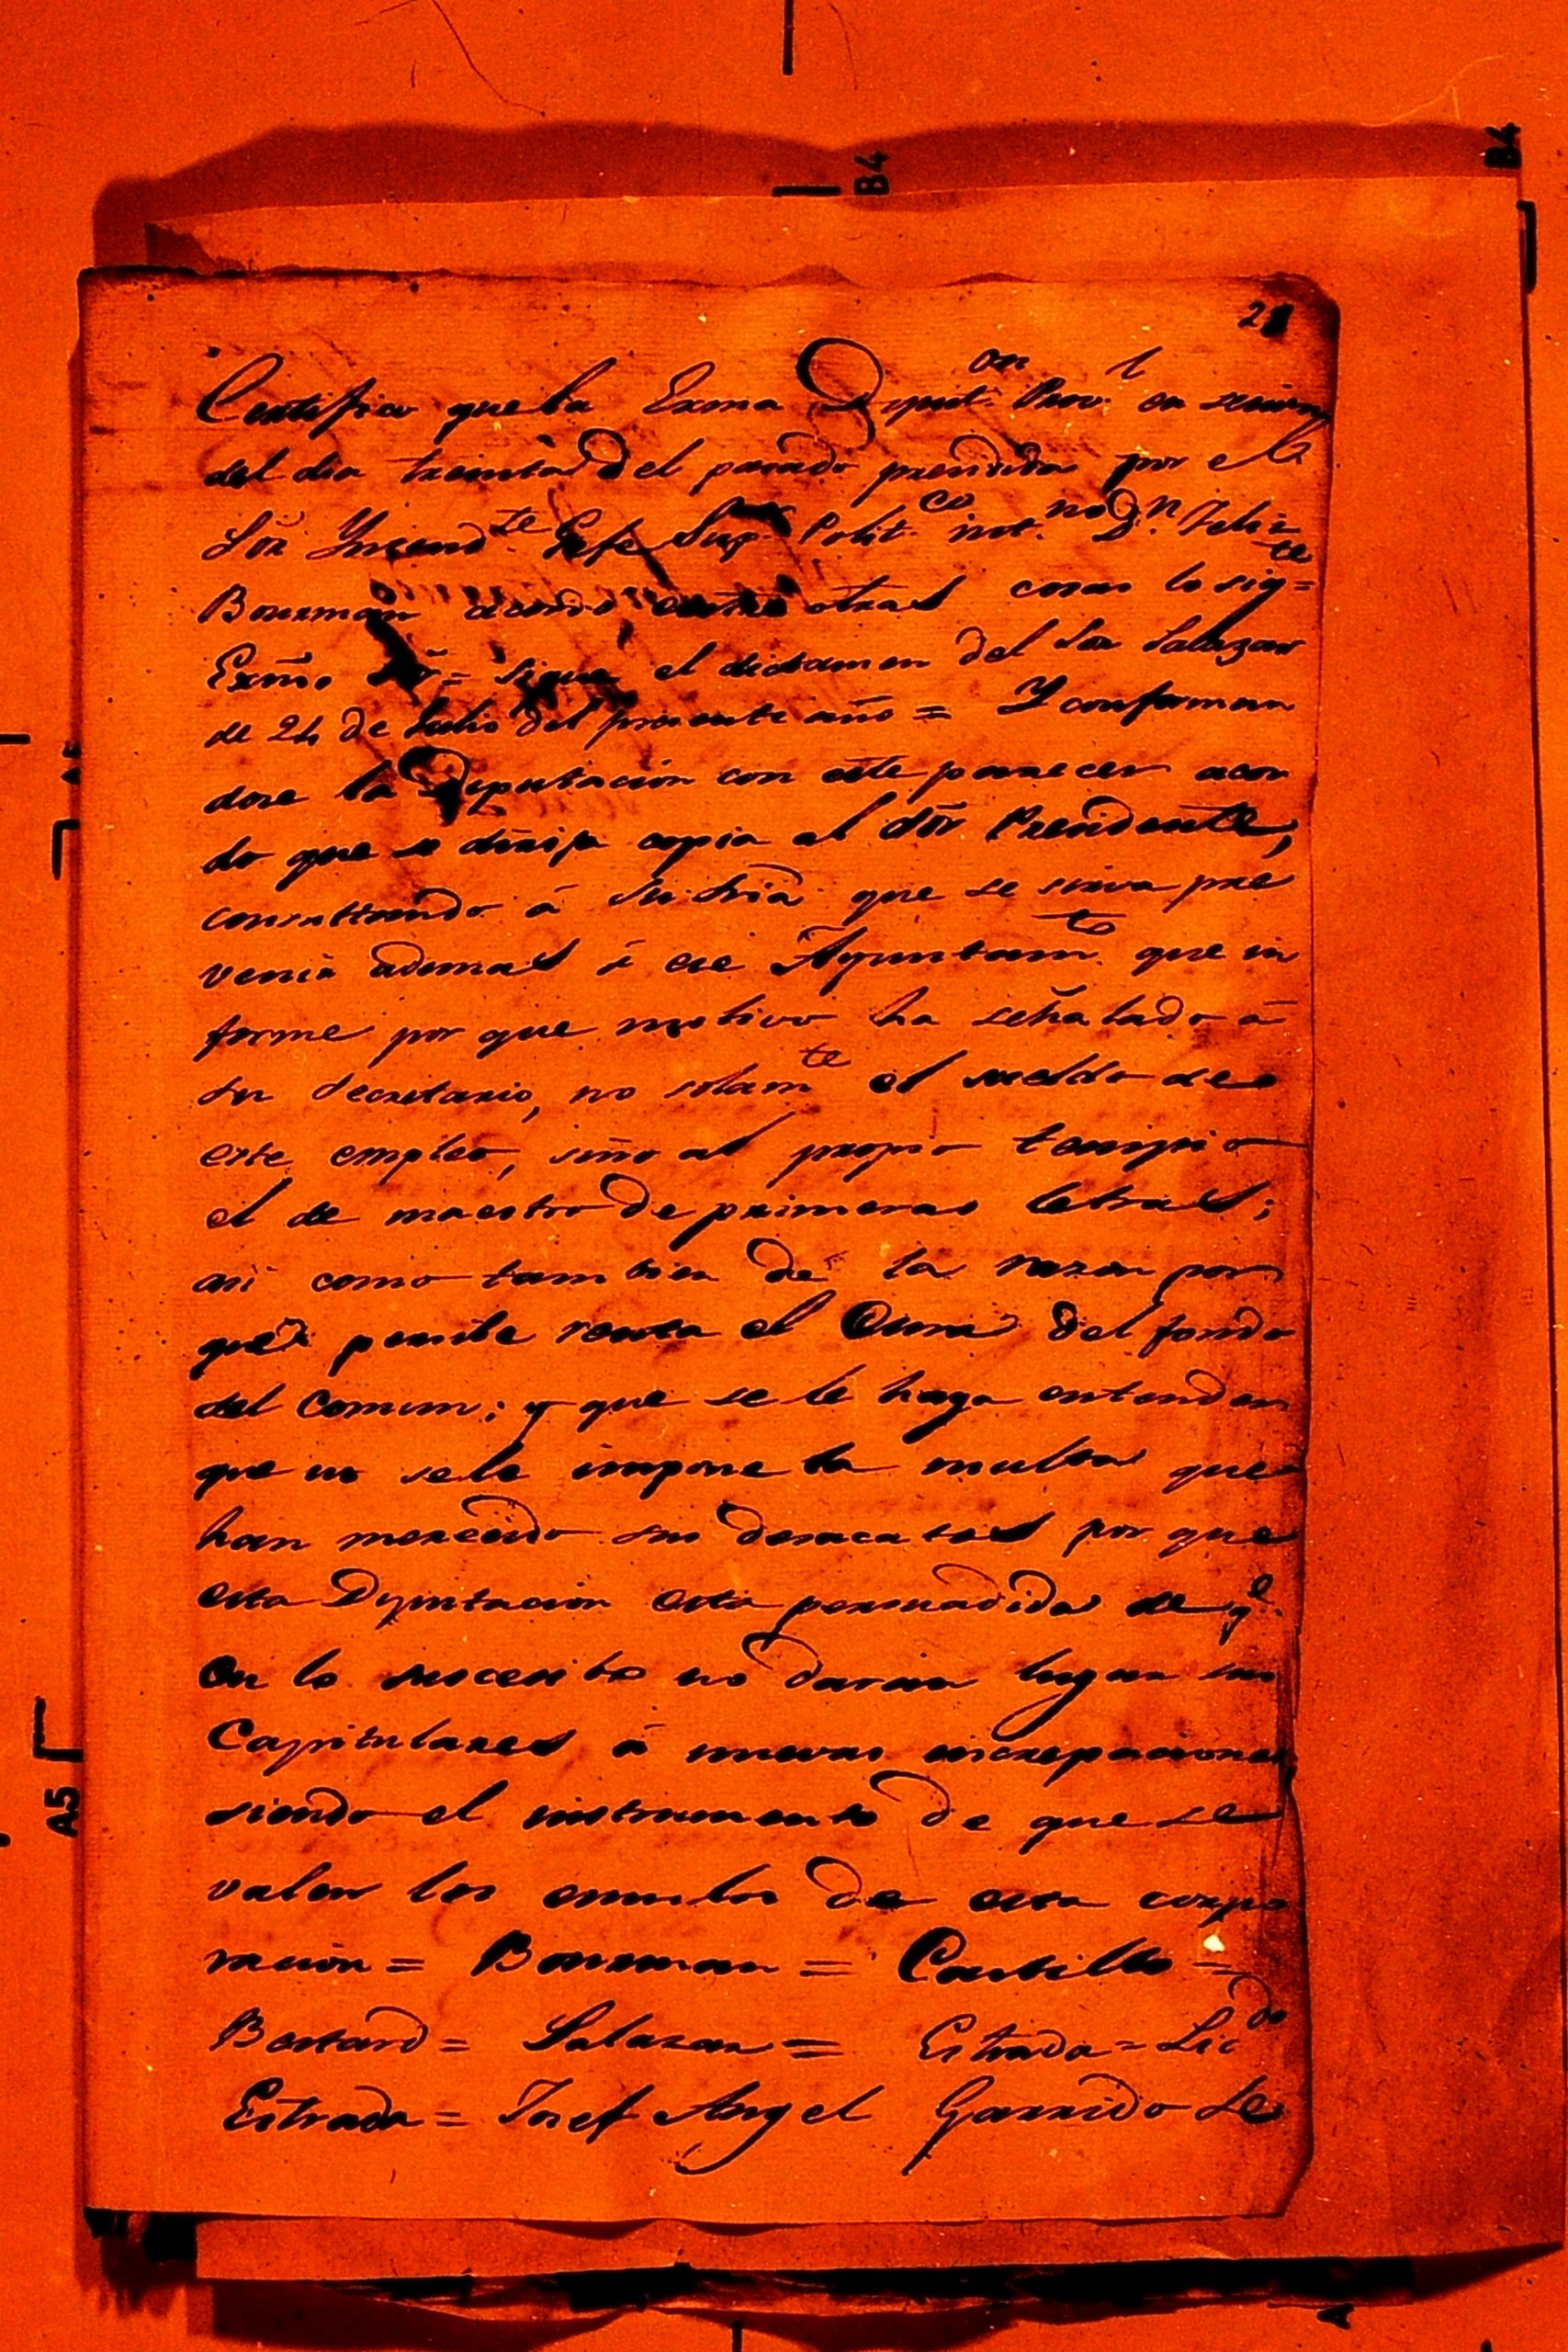 28
Certifico que la Exma Diput.on Prov.l en sesion
del dia treinta del pasado presidida por el
Sor Yntend.te Gefe Sup. Polit.co int.no D.n Feliz
Bourman acordó entre otras cosas lo sig.te=
Exmo Sõr= sigue el dictamen del Sor Salazar
de 24 de Julio del presente año = Y conforman
dose la Diputacion con este parecer acor
do que se dirija copia al Sõr Presidente,
consultando á Su Sria que se sirva pre
venir ademas á ese Ayuntam.to que in
forme por que motivo ha señalado á
su Secretario, no solam.te el sueldo de
este empleo, sino al propio tiempo
el de maestro de primeras letras;
asi como tambien de la razon por
que percibe renta el Cura del fondo
del comun; y que se le haga entender
que no se le impone la multa que
han merecido sus desacatos por que
esta Diputacion esta persuadida de q.e
en lo succesibo no daran lugar sus
Capitulares á nuevas increpaciones
siendo el instrumento de que se
valen los emulos de esta corpo
racion = Bourman = Castillo =
Bestard = Salazar = Estrada = Lic.do
Estrada = Josef Angel Garrido Se
B4
B4
A5